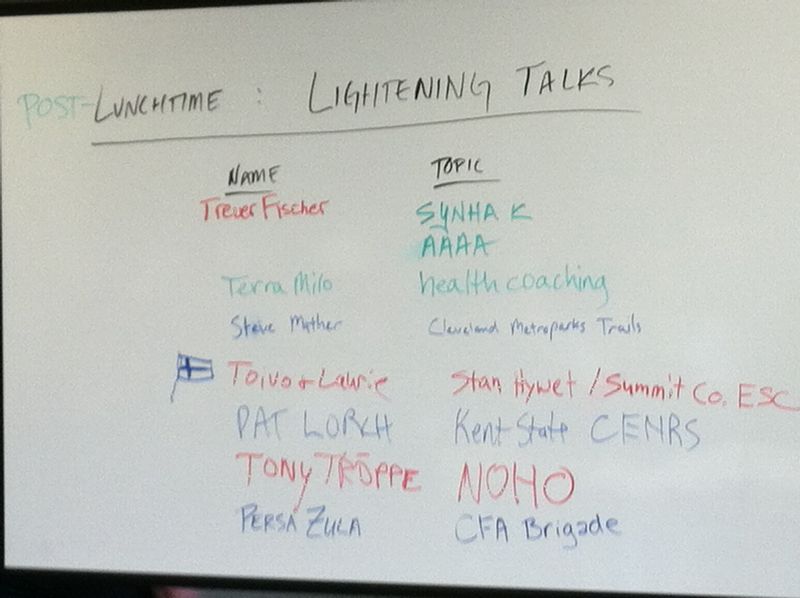 POST-LUNCHTIME : LIGHTENING TALKS
NAME TOPIC
Trever Fischer SYNHAK
AAAA
Terra Milo health coaching
Steve Mather Cleveland Metroparks Trails
Toivo + Laurie Stan Hywet / Summit Co. ESC
PAT LORCH Kent State CENRS
TONY TROPPE NOHO
PERSA ZULA CFA Brigade